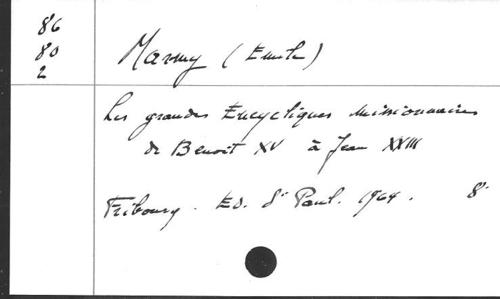 86
80
2
Marmy (Emile)
Les grandes Encycliques missionnaires
de Benoit XV à Jean XXIII
Fribourg. Ed. St Paul. 1964. 8°